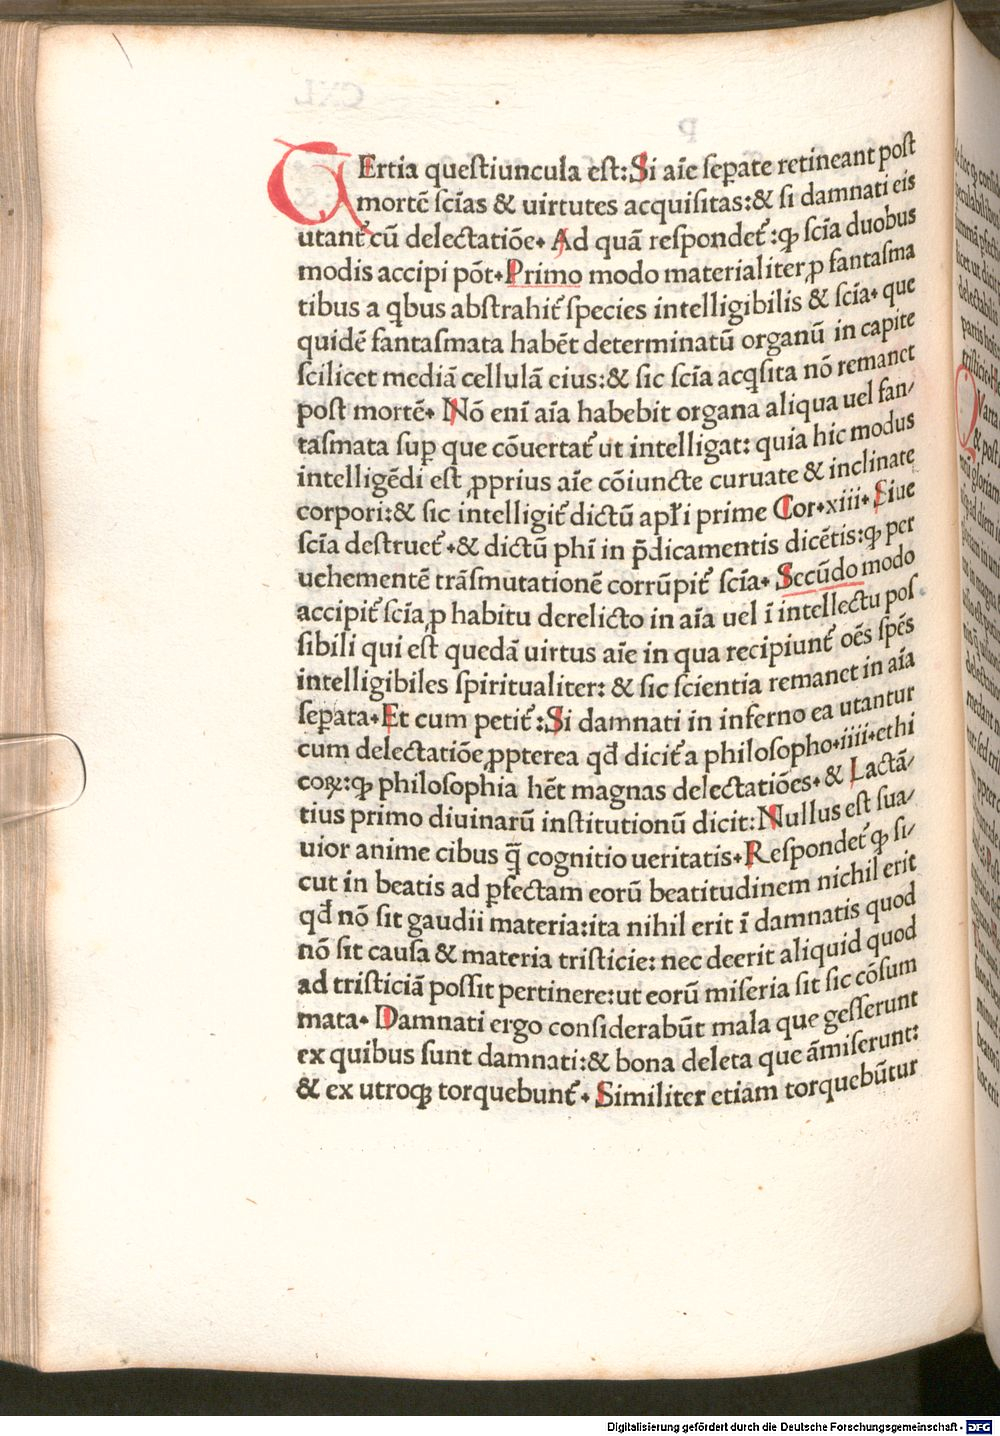 TErtia questiuncula est: Si aīe sep̄ate retineant post
mortē scīas & uirtutes acquisitas: & si damnati eis
utant᷑ cū delectatiōe. Ad quā respondet᷑: ꝙ scīa duobus
modis accipi pōt. Primo modo materialiter ꝓ fantasma
tibus a qbus abstrahit᷑ species intelligibilis & scīa. que
quidē fantasmata habēt determinatū organū in capite
scilicet mediā cellulā eius: & sic scīa acqsita nō remanet
post mortē. Nō enī aīa habebit organa aliqua uel fan/
tasmata suꝑ que cōuertat᷑ ut intelligat: quia hic modus
intelligēdi est ꝓprius aīe cōiuncte curuate & inclinate
corpori: & sic intelligit᷑ dictū apl̄i prime Cor. xiii. Siue
scīa destruet᷑. & dictū phī in p̄dicamentis dicētis: ꝙ per
uehementē trāsmutationē corrūpit᷑ scīa. Secūdo modo
accipit᷑ scīa ꝓ habitu derelicto in aīa uel ī intellectu pos
sibili qui est quedā uirtus aīe in qua recipiunt᷑ oēs spēs
intelligibiles spiritualiter: & sic scientia remanet in aīa
seꝑata. Et cum petit᷑: Si damnati in inferno ea utantur
cum delectatiōe ꝓpterea qd̄ dicit᷑ a philosopho. iiii. ethi
coꝝ: ꝙ philosophia hēt magnas delectatiōes. & Lactā/
tius primo diuinarū institutionū dicit: Nullus est sua/
uior anime cibus q̄ cognitio ueritatis. Respondet᷑ ꝙ si/
cut in beatis ad ꝑfectam eorū beatitudinem nichil erit
qd̄ nō sit gaudii materia: ita nihil erit ī damnatis quod
nō sit causa & materia tristicie: nec deerit aliquid quod
ad tristiciā possit pertinere: ut eorū miseria sit sic cōsum
mata. Damnati ergo considerabūt mala que gesserunt
ex quibus sunt damnati: & bona deleta que āmiserunt:
& ex utroqꝫ torquebunt᷑. Similiter etiam torquebūtur
Digitalisierung gefördert durch die Deutsche Forschungsgemeinschaft - DFG